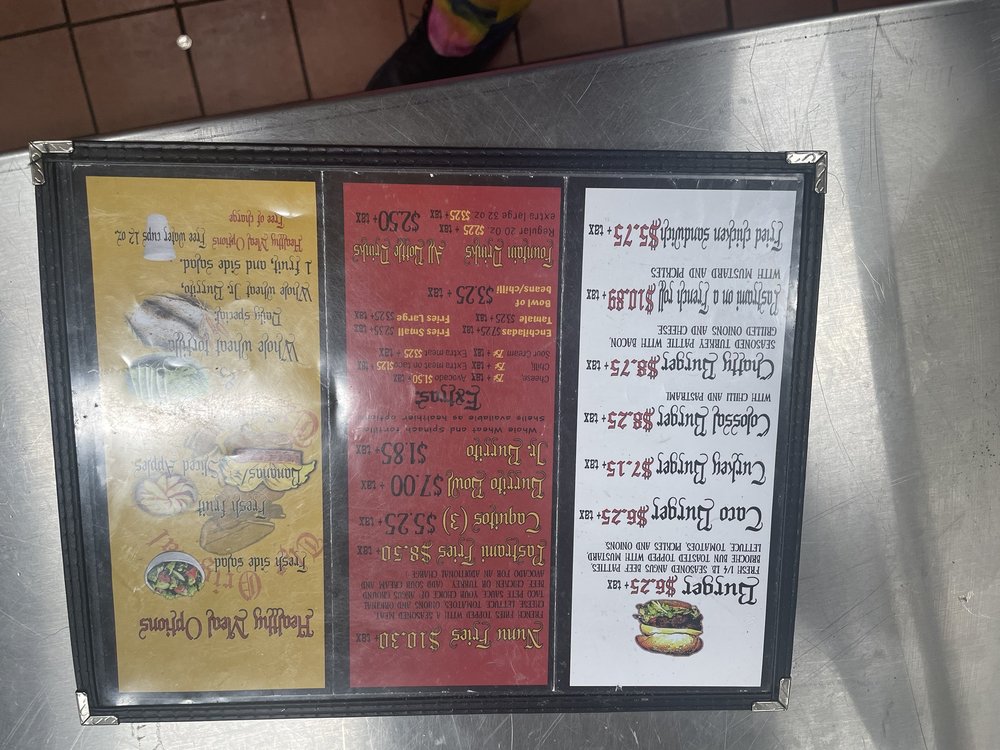 Burger $6.25 + tax
FRESH 1/4 LB SEASONED ANGUS BEEF PATTIES,
BRIOCHE BUN TOASTED TOPPED WITH MUSTARD
LETTUCE, TOMATOES, PICKLES AND ONIONS.
Taco Burger $6.25 + tax
Turkey Burger $7.15 + tax
Colossal Burger $8.25 + tax
WITH CHILLI AND PASTRAMI
Chatty Burger $8.75 + tax
SEASONED TURKEY PATTIE WITH BACON,
GRILLED ONIONS AND CHEESE
Pastrami on a French roll $10.89 + tax
WITH MUSTARD AND PICKLES
Fried chicken sandwich $5.75 + tax
Numi Fries $10.30 + tax
FRENCH FRIES TOPPED WITH A SEASONED MEAT
CHEESE LETTUCE TOMATOES ONIONS AND ORIGINAL
TACO PETE SAUCE YOUR CHOICE OF ANGUS GROUND
BEEF CHICKEN OR TURKEY. (ADD SOUR CREAM AND
AVOCADO FOR AN ADDITIONAL CHARGE)
Pastrami Fries $8.50 + tax
Taquitos (3) $5.25 + tax
Burrito Bowl $7.00 + tax
Jr. Burrito $1.85 + tax
Whole Wheat and Spinach tortilla
Shells available as healthier option
Extras
Cheese + tax Avocado $1.50 + tax
Chilli + tax Extra meat on taco $1.25 + tax
Sour Cream + tax Extra meat $3.25 + tax
Enchiladas $7.25 + tax Fries Small $2.35 + tax
Tamale $3.25 + tax Fries Large $3.25 + tax
Bowl of
beans/chilli $3.25 + tax
Fountain Drinks All Bottle Drinks
Regular 20 oz $2.25 + tax $2.50 + tax
extra large 32 oz $3.25 + tax
Healthy Meal Options
Fresh side salad
Fresh fruit
Bananas Sliced Apples
Whole wheat tortilla
Daily special
Whole wheat Jr. Burrito,
1 fruit, and side salad.
Healthy Meal Options Free water cups 12 oz.
Free of charge